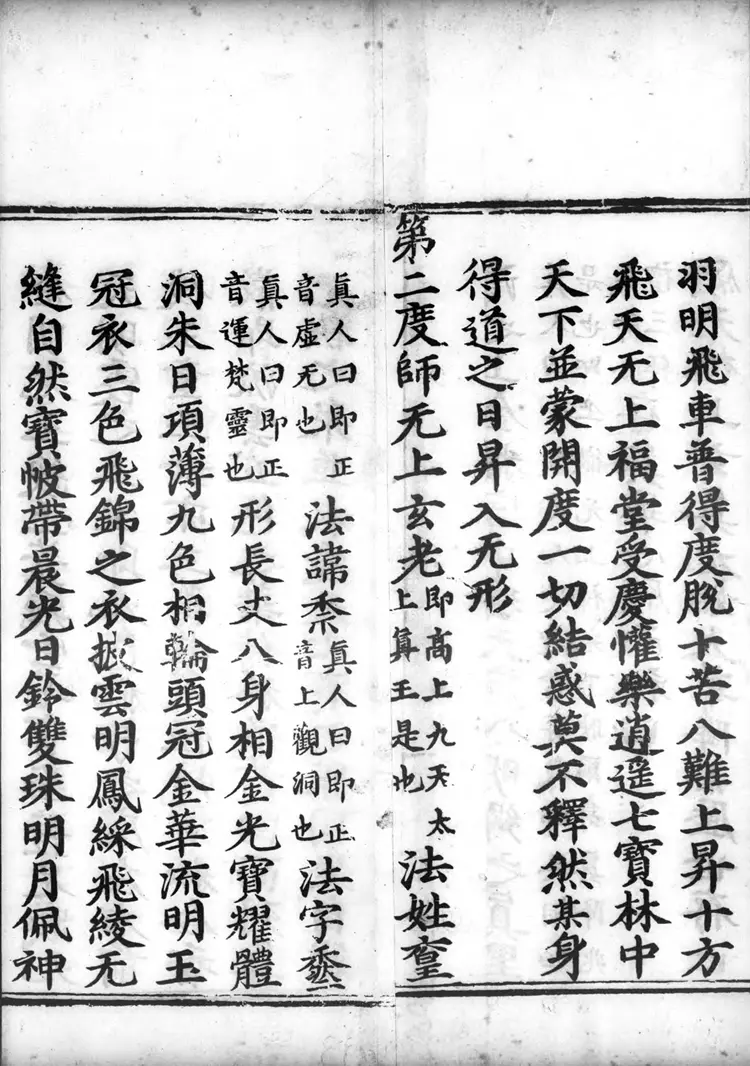 羽明飛車普得度脫十苦八難上昇十方
飛天无上福堂受慶懽樂逍遥七寶林中
天下並蒙開度一切結惑莫不釋然其身
得道之日昇入无形
第二度師无上玄老即高上九天太上真王是也法姓
眞人曰即正音虚无也法諱真人曰即正音上觀洞也法字
眞人曰即正音運梵靈也形長丈八身相金光寶耀體
洞朱日項薄九色相輪頭冠金華流明玉
冠衣三色飛錦之衣披雲明鳳綵飛綾无
縫自然寶帔帶晨光日鈴雙珠明月佩神